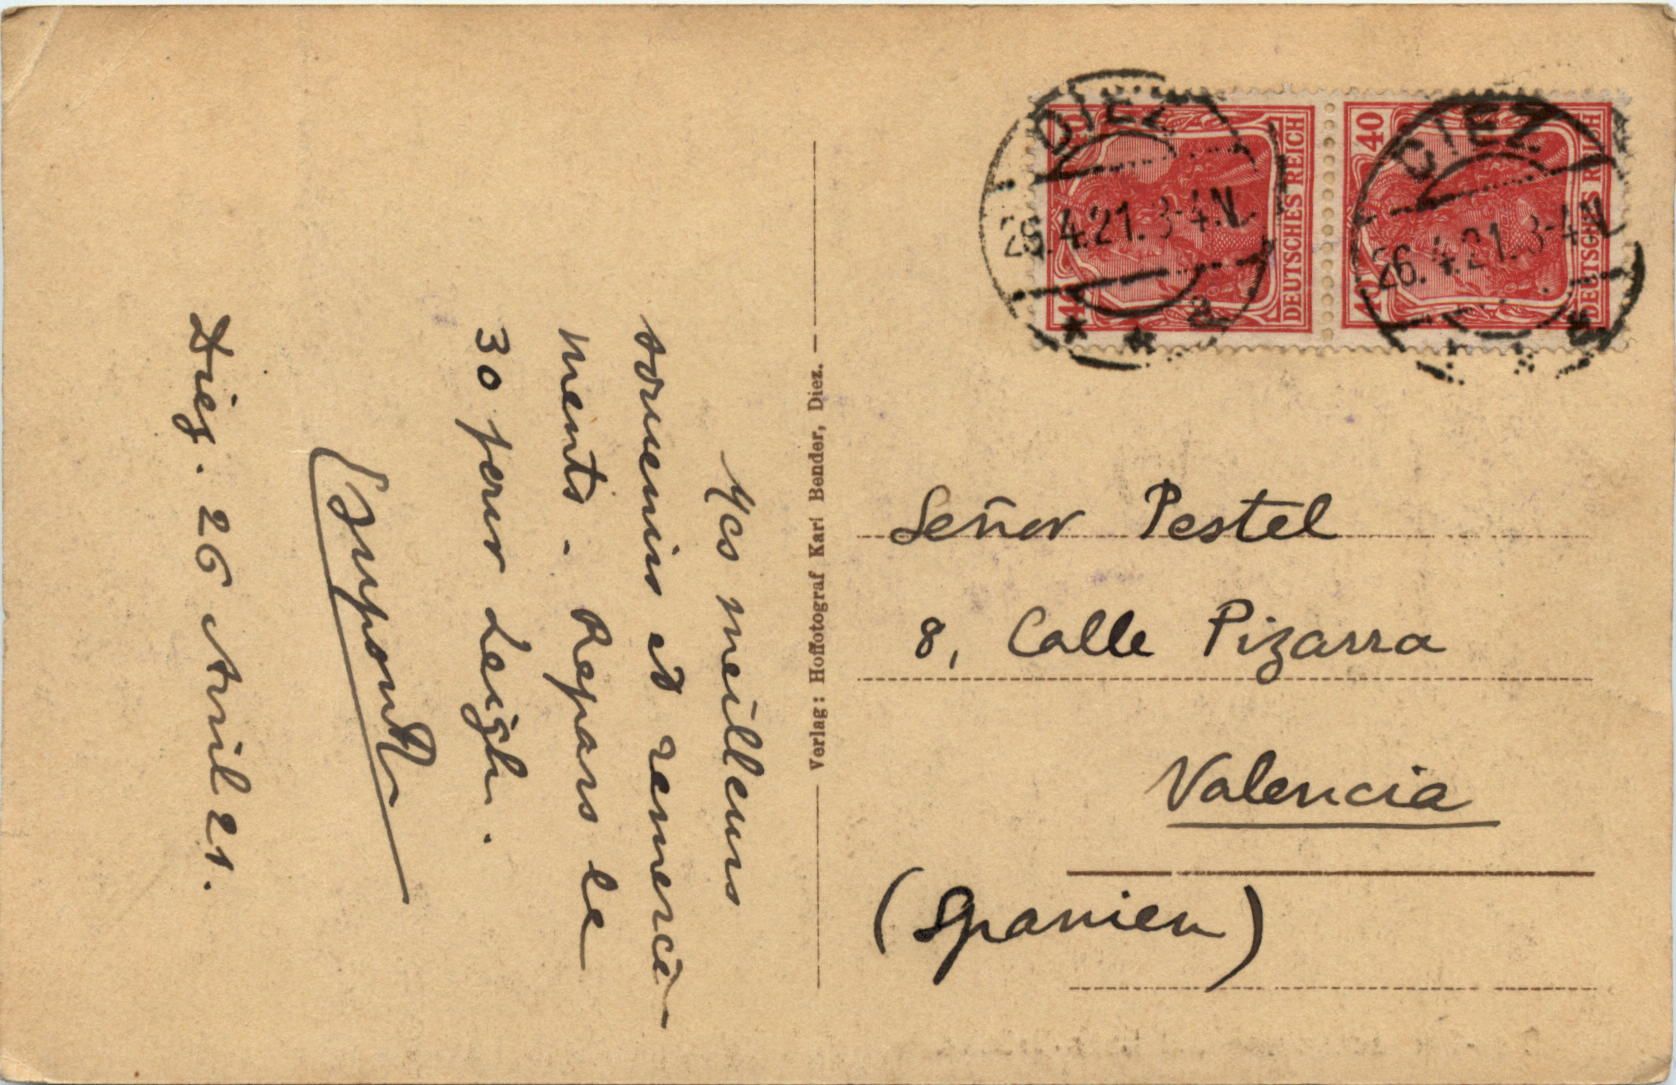 Mes meilleurs
souvenirs et remercie-
ments. Repars le
30 pour Leigh.
Diez. 26 Avril 21.
Verlag: Hoffotograf Karl Bender, Diez.
DIEZ
26.4.21. 3-4 N.
a
DEUTSCHES REICH
40
DIEZ
26.4.21. 3-4 N.
DEUTSCHES REICH
40
Señor Pestel
8, Calle Pizarra
Valencia
(Spanien)